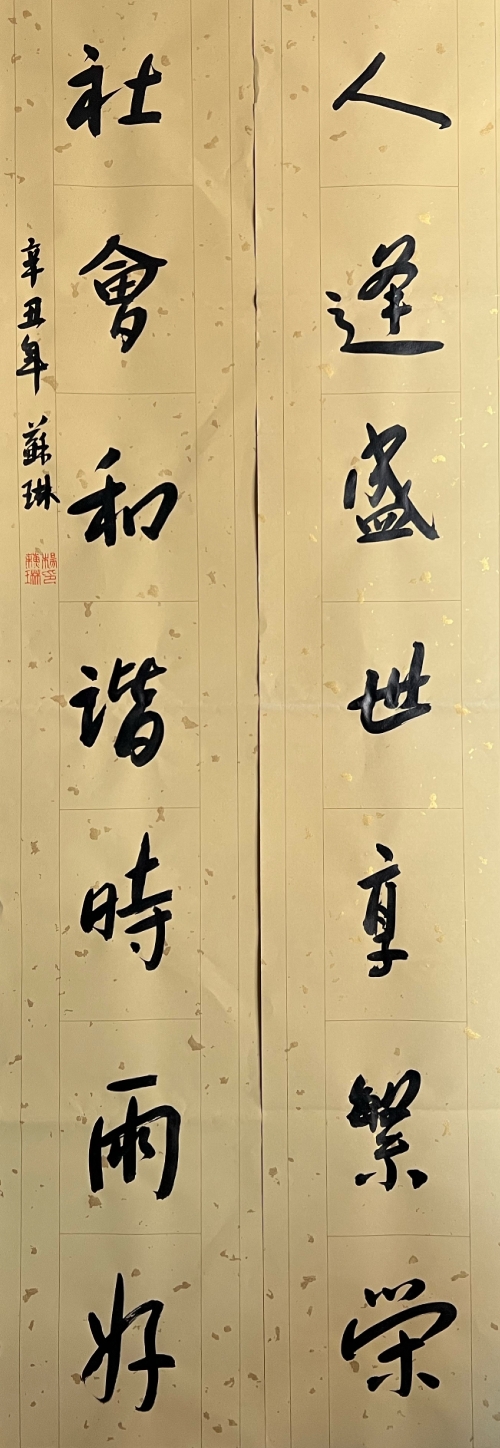 人逢盛世享繁荣
社會和谐時雨好
辛丑年 蘇琳